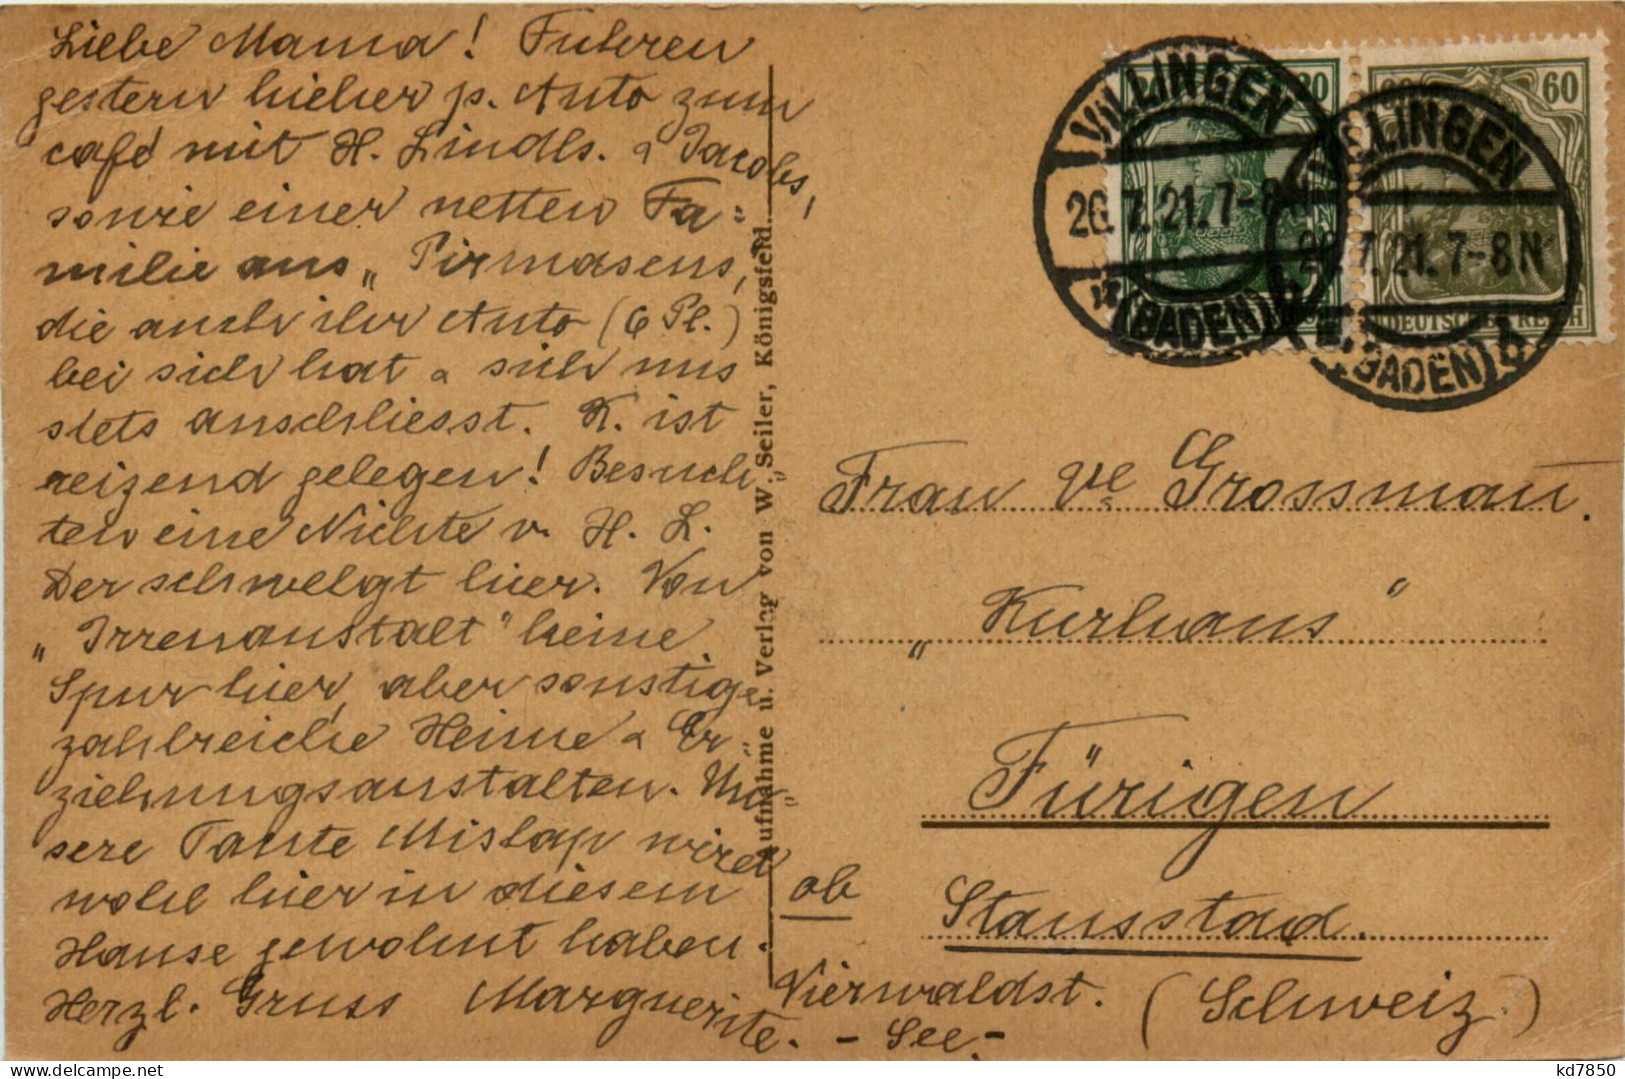 Liebe Mama! Fuhren
gestern hieher p. Auto zum
café mit H. Lindls. & Jacobs,
sowie einer netten Fa-
milie aus „Pirmasens,
die auch ihr Auto (6 Pl.)
bei sich hat & sich uns
stets anschliesst. K. ist
reizend gelegen! Besuch
ten eine Nichte v. H. L.
Der schwelgt hier. Von
„Irrenanstalt" keine
Spur hier, aber sonstige
zahlreiche Heime & Er-
ziehungsanstalten. Un-
sere Tante Mislap wird
wohl hier in diesem
Hause gewohnt haben.
Herzl. Gruss Marguerite.
Aufnahme u. Verlag von W. Seiler, Königsfeld.
VILLINGEN
26.7.21.7-8N
(BADEN)
VILLINGEN
26.7.21.7-8N
(BADEN)
60
DEUTSCHES REICH
Frau Ve Grossmann.
„Kurhaus"
Fürigen
ob Stansstad.
Vierwaldst. (Schweiz)
- See -
kd7850